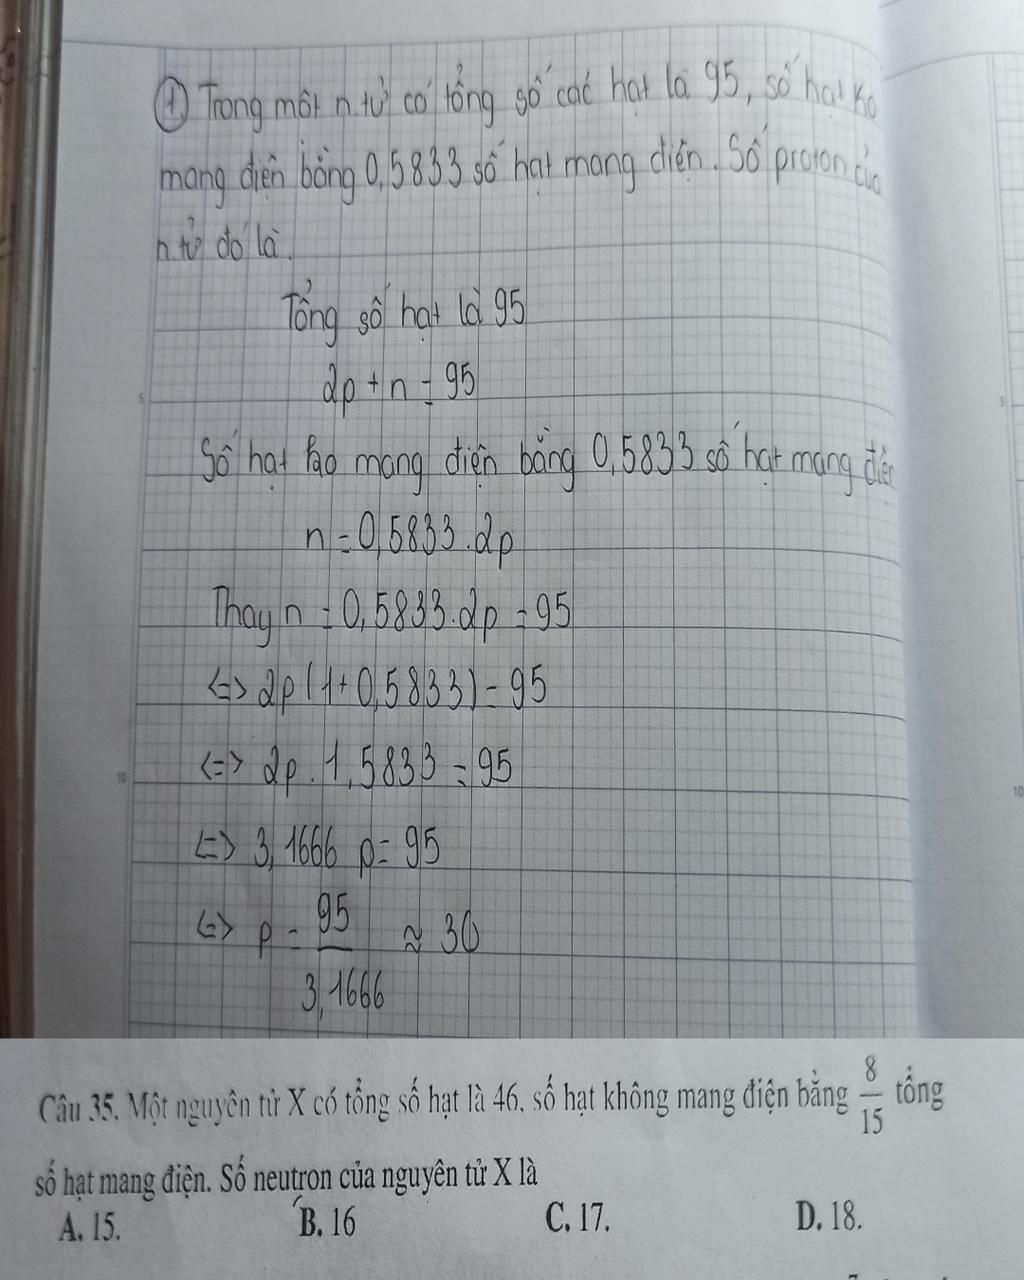 ① Trong một n.tử có tổng số các hạt là 95, số hạt ko
mang điện bằng 0,5833 số hạt mang điện. Số proton của
n.tử đó là.
Tổng số hạt là 95
2p + n = 95
Số hạt ko mang điện bằng 0,5833 số hạt mang điện
n = 0,5833.2p
Thay n = 0,5833.2p = 95
<=> 2p (1+0,5833) = 95
<=> 2p . 1,5833 = 95
<=> 3,1666 p = 95
<=> p = 95/3,1666 ≈ 30
Câu 35. Một nguyên tử X có tổng số hạt là 46, số hạt không mang điện bằng 8/15 tổng
số hạt mang điện. Số neutron của nguyên tử X là
A. 15. B. 16 C. 17. D. 18.
5
10
5
10